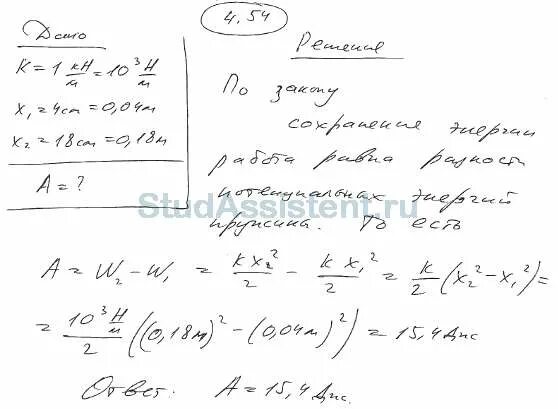 4.54
Дано
K = 1 кН/м = 10³ Н/м
x₁ = 4см = 0,04м
x₂ = 18см = 0,18м
A = ?
Решение
По закону
сохранение энергии
работа равна разности
потенциальных энергий
пружины. То есть
StudAssistent.ru
A = W₂ - W₁ = kx₂²/2 - kx₁²/2 = k/2 (x₂² - x₁²) =
= 10³ Н/м / 2 ((0,18м)² - (0,04м)²) = 15,4 Дж
Ответ. A = 15,4 Дж.